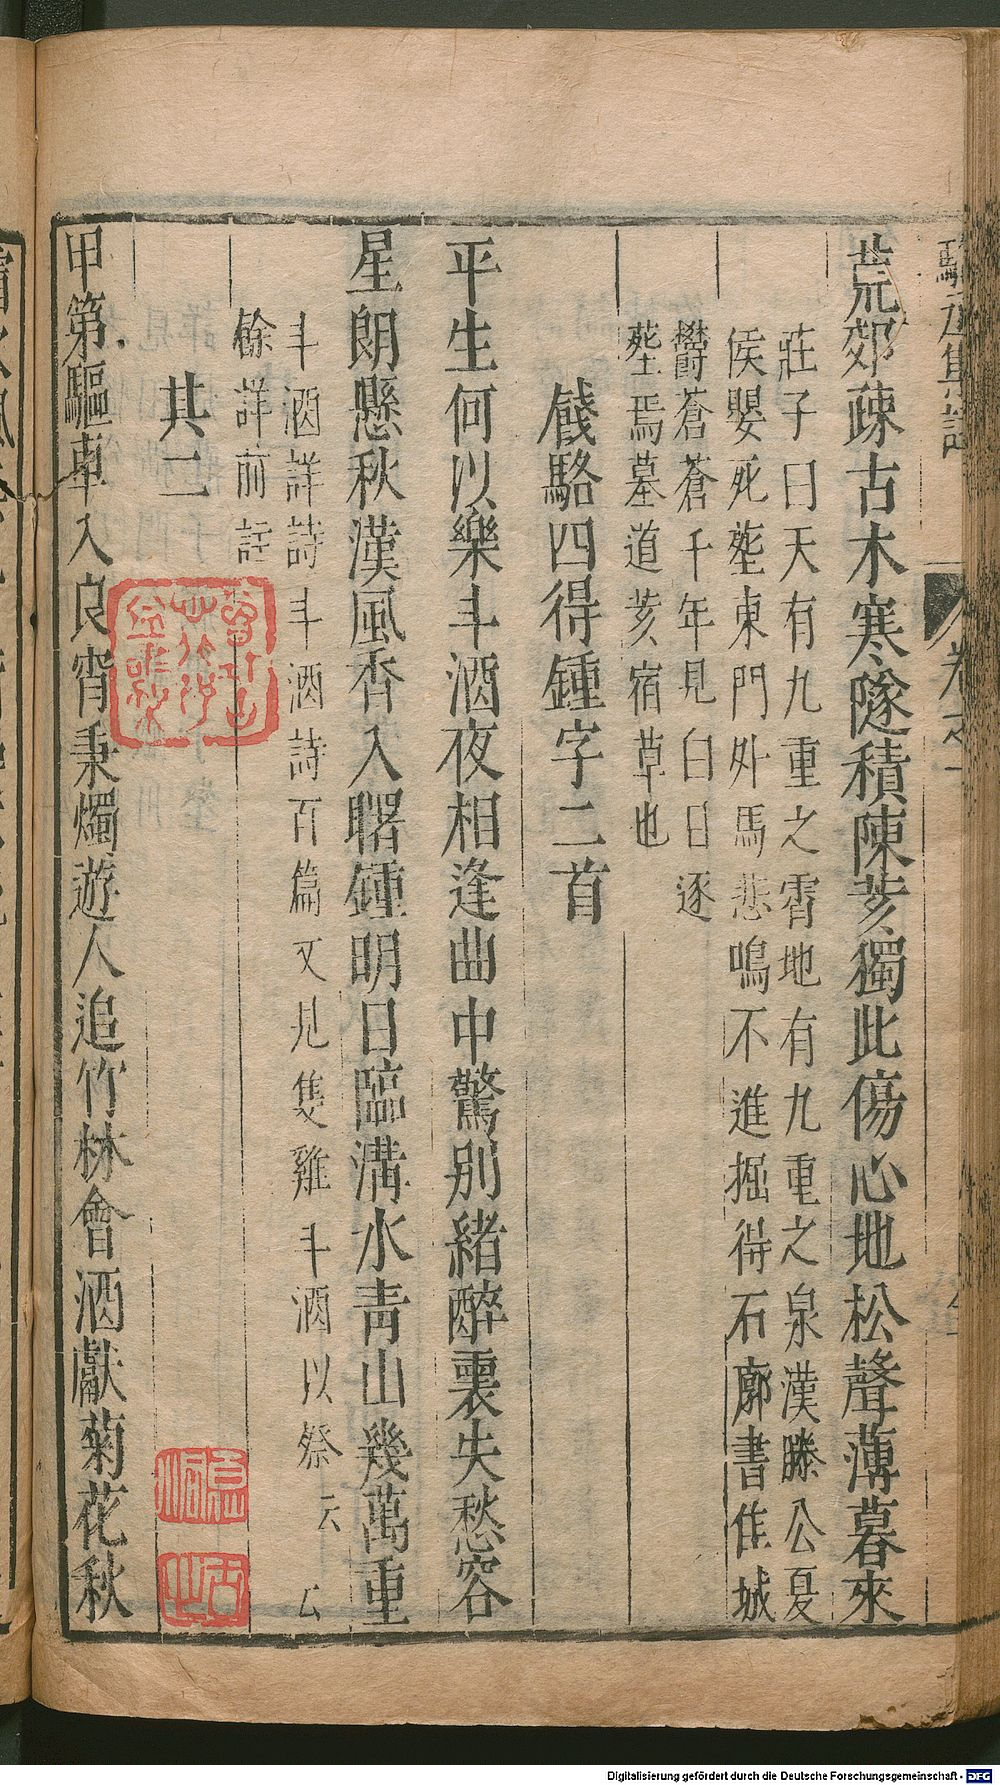 荒郊疎古木寒隧積陳荄獨此傷心地松聲薄暮來
莊子曰天有九重之霄地有九重之泉漢滕公夏
侯嬰死塟東門外馬悲鳴不進掘得石廓書作城
欝蒼蒼千年見白日逐
塟焉墓道荄宿草也
餞駱四得鍾字二首
平生何以樂斗酒夜相逢曲中驚別緒醉裏失愁容
星朗懸秋漢風香入曙鍾明日臨溝水青山幾萬重
斗酒詳詩斗酒詩百篇又見隻雞斗酒以祭云厶
餘詳前註
其二
甲第驅車入良宵秉燭遊人追竹林會酒獻菊花秋
卷之一
Digitalisierung gefördert durch die Deutsche Forschungsgemeinschaft - DFG